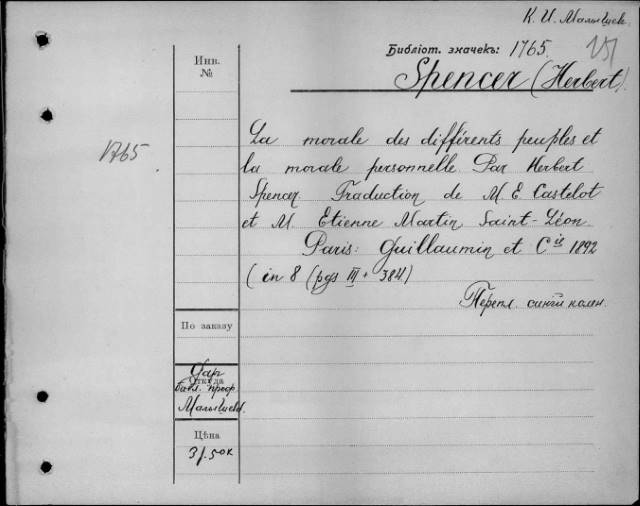 К. И. Малышев.
Библіот. значекъ: 1765.
Инв.
№
Spencer (Herbert).
1765.
La morale des différents peuples et
la morale personnelle. Par Herbert
Spencer. Traduction de M. E. Castelot
et M. Etienne Martin Saint-Léon
Paris: Guillaumin et Cie 1892
(in 8 (pgs III + 384)
Перепл.
По заказу
Дар
Откуда
проф
Малышева.
Цѣна
3 50к